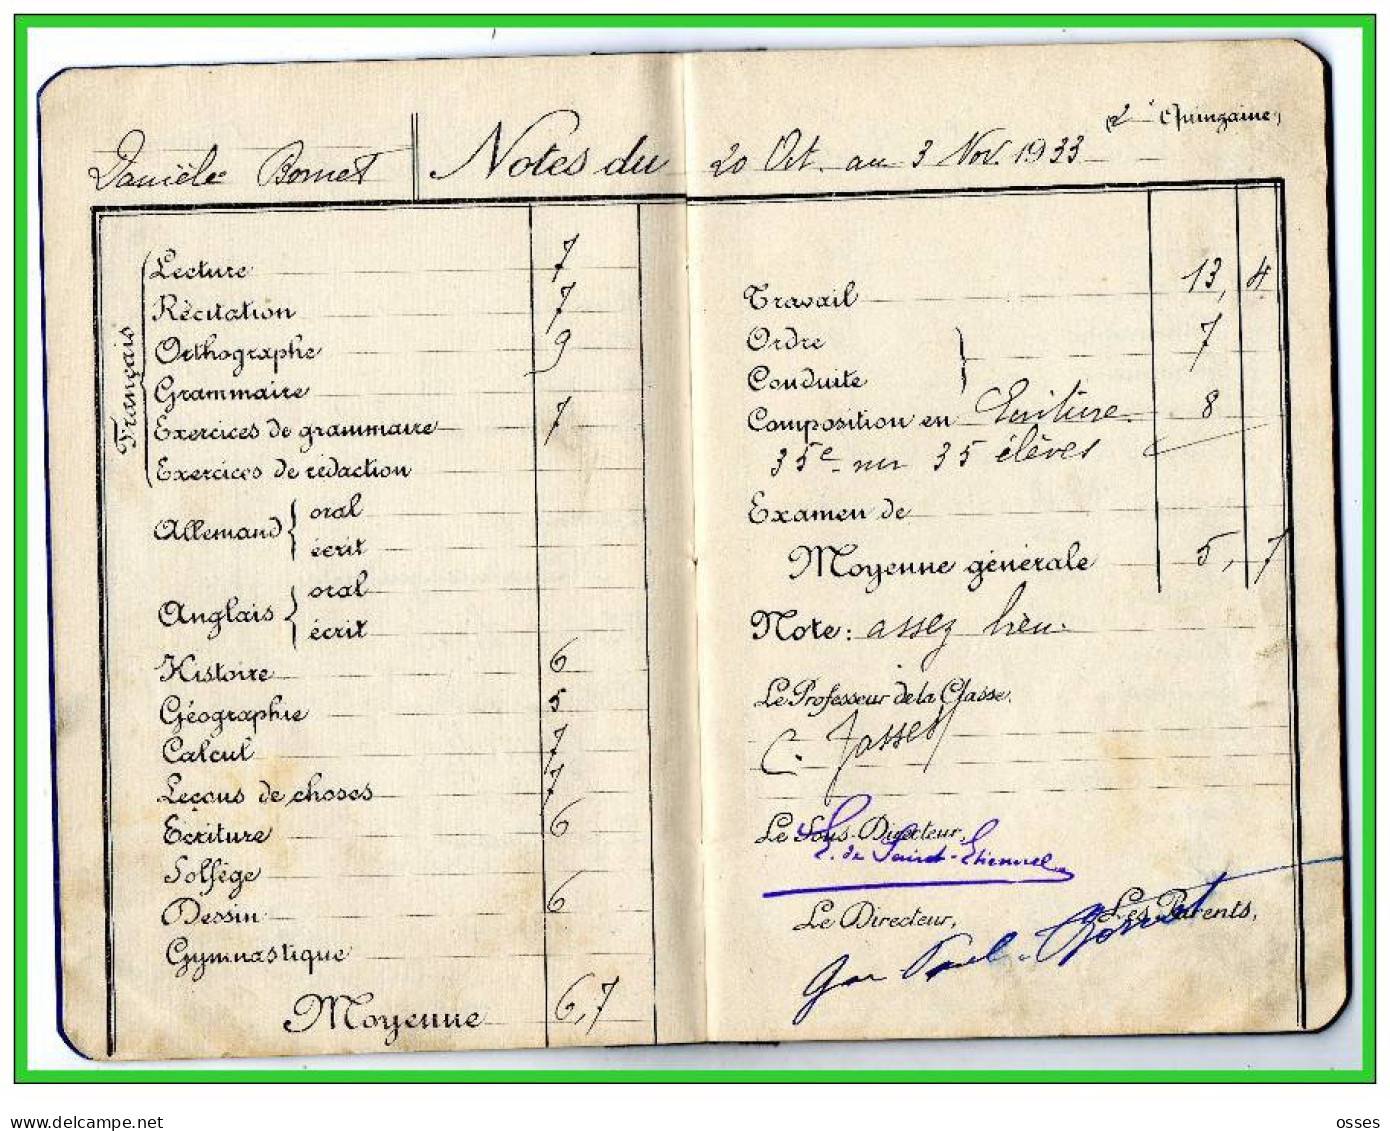 2e Quinzaine,
Danièle Bornet Notes du 20 Oct. au 3 Nov. 1933
Français
Lecture 7
Récitation 7
Orthographe 9
Grammaire
Exercices de grammaire 7
Exercices de rédaction
Allemand { oral
écrit
Anglais { oral
écrit
Histoire 6
Géographie 5
Calcul 7
Leçons de choses 7
Ecriture 6
Solfège
Dessin 6
Gymnastique
Moyenne 6,7
Travail 13,4
Ordre
Conduite } 7
Composition en Ecriture 8
35e sur 35 élèves
Examen de
Moyenne générale 5,7
Note: assez bien.
Le Professeur de la Classe.
C. Jasset
Le Sous-Directeur,
E. de Saint-Etienne
Le Directeur, Les Parents,
Paul Bornet
delcampe.net
osses